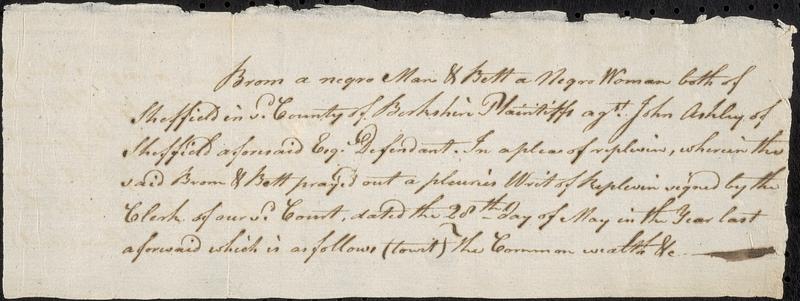 Brom a negro Man & Bett a Negro Woman both of
Sheffield in sd. County of Berkshire Plaintiffs agst. John Ashley of
Sheffield aforesaid Esqr. Defendant. In a plea of replevin, wherein the
said Brom & Bett prayed out a pluries Writ of Replevin signed by the
Clerk of our sd. Court, dated the 28th. day of May in the Year last
aforesaid which is as follows (towit) The Common wealth &c